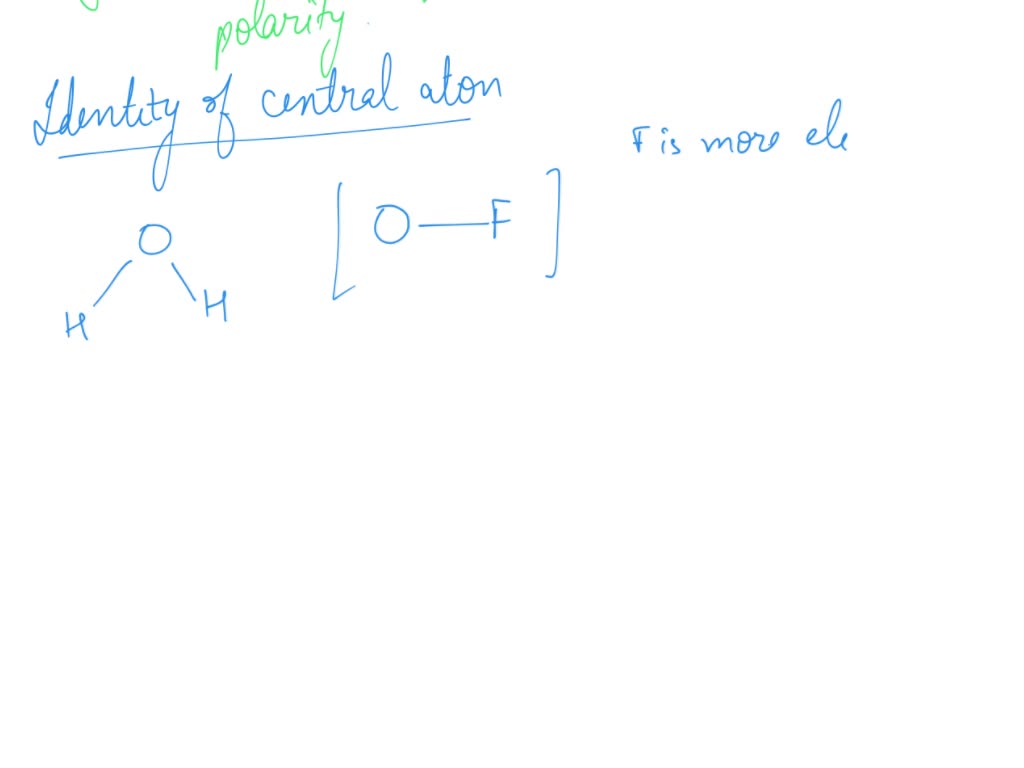 polarity.
Identity of central atom
F is more ele
O
[O—F]
H
H